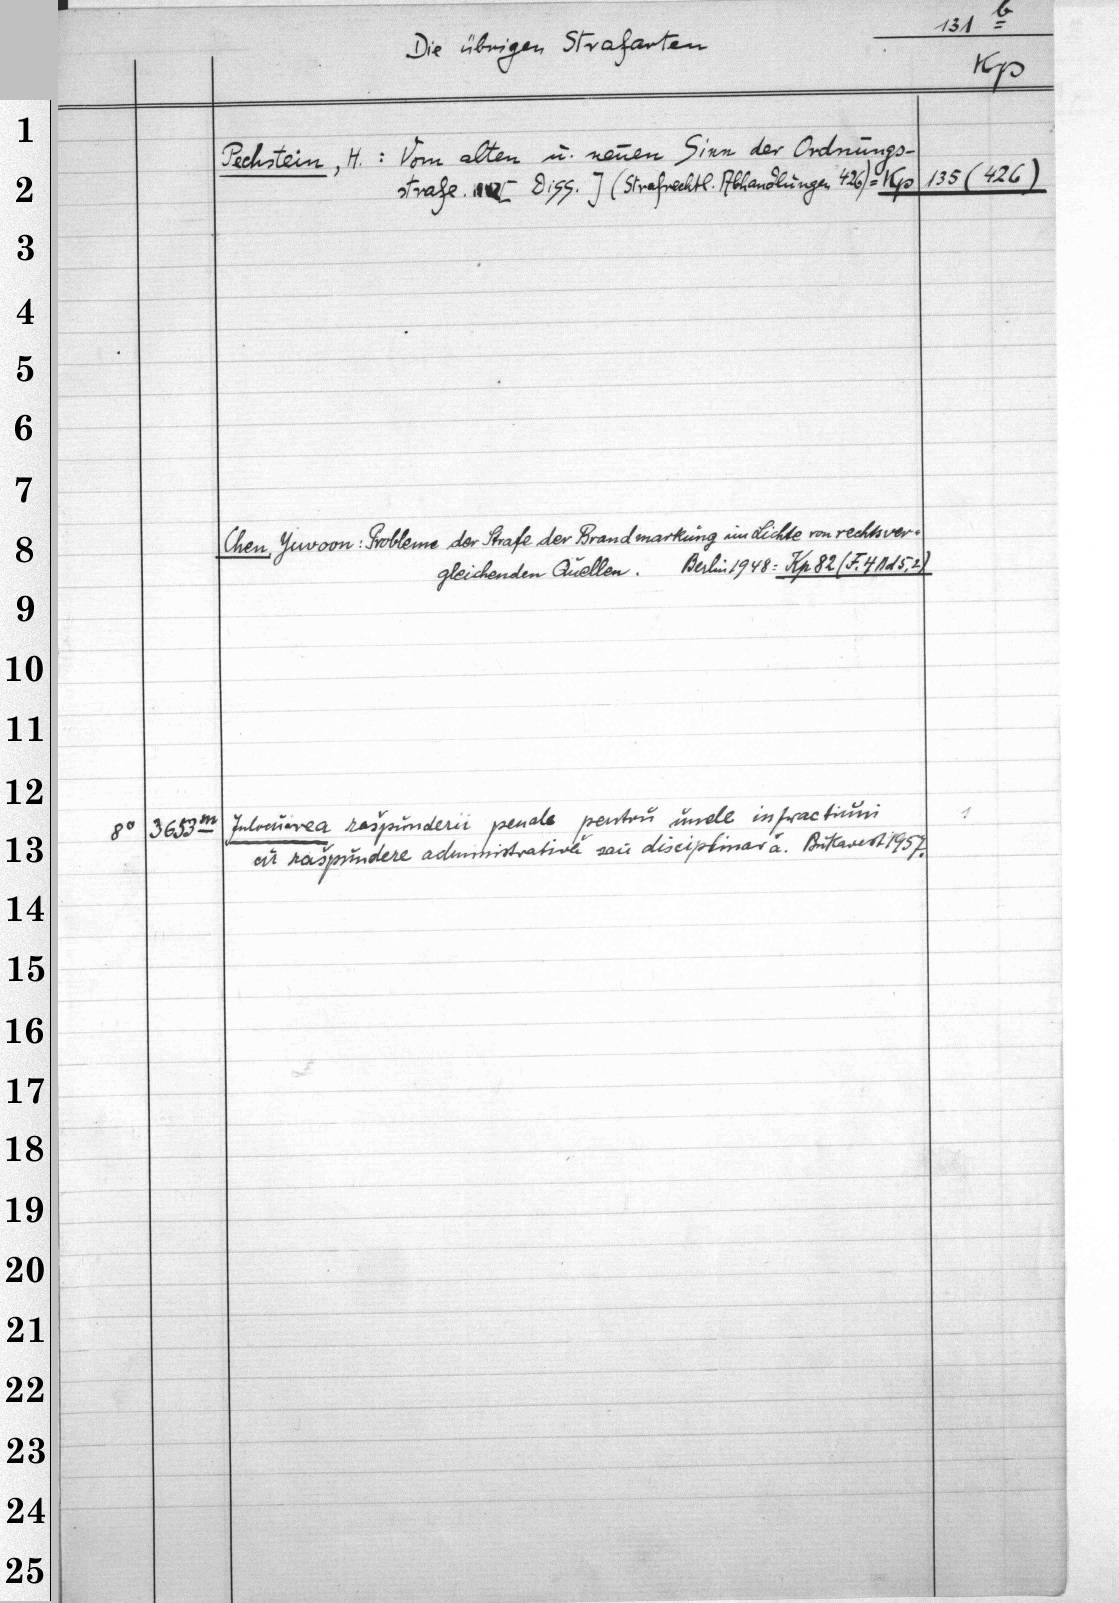 Die übrigen Strafarten
131 b
Kp
1
Pechstein, H. : Vom alten u. neuen Sinn der Ordnungs-
2
strafe. [Diss.] (Strafrechtl. Abhandlungen 426) = Kp 135 (426)
3
4
5
6
7
8
Chen, Yuwoon: Probleme der Strafe der Brandmarkung im Lichte von rechtsver-
gleichenden Quellen. Berlin 1948 = Kp 82 (F. 4 Ad 5,2)
9
10
11
12
8° 3653 m Inlocuirea rašpunderii penale pentru unele infractiuni 1
13
cu rašpundere administrativă sau disciplinară. Bukarest 1957.
14
15
16
17
18
19
20
21
22
23
24
25